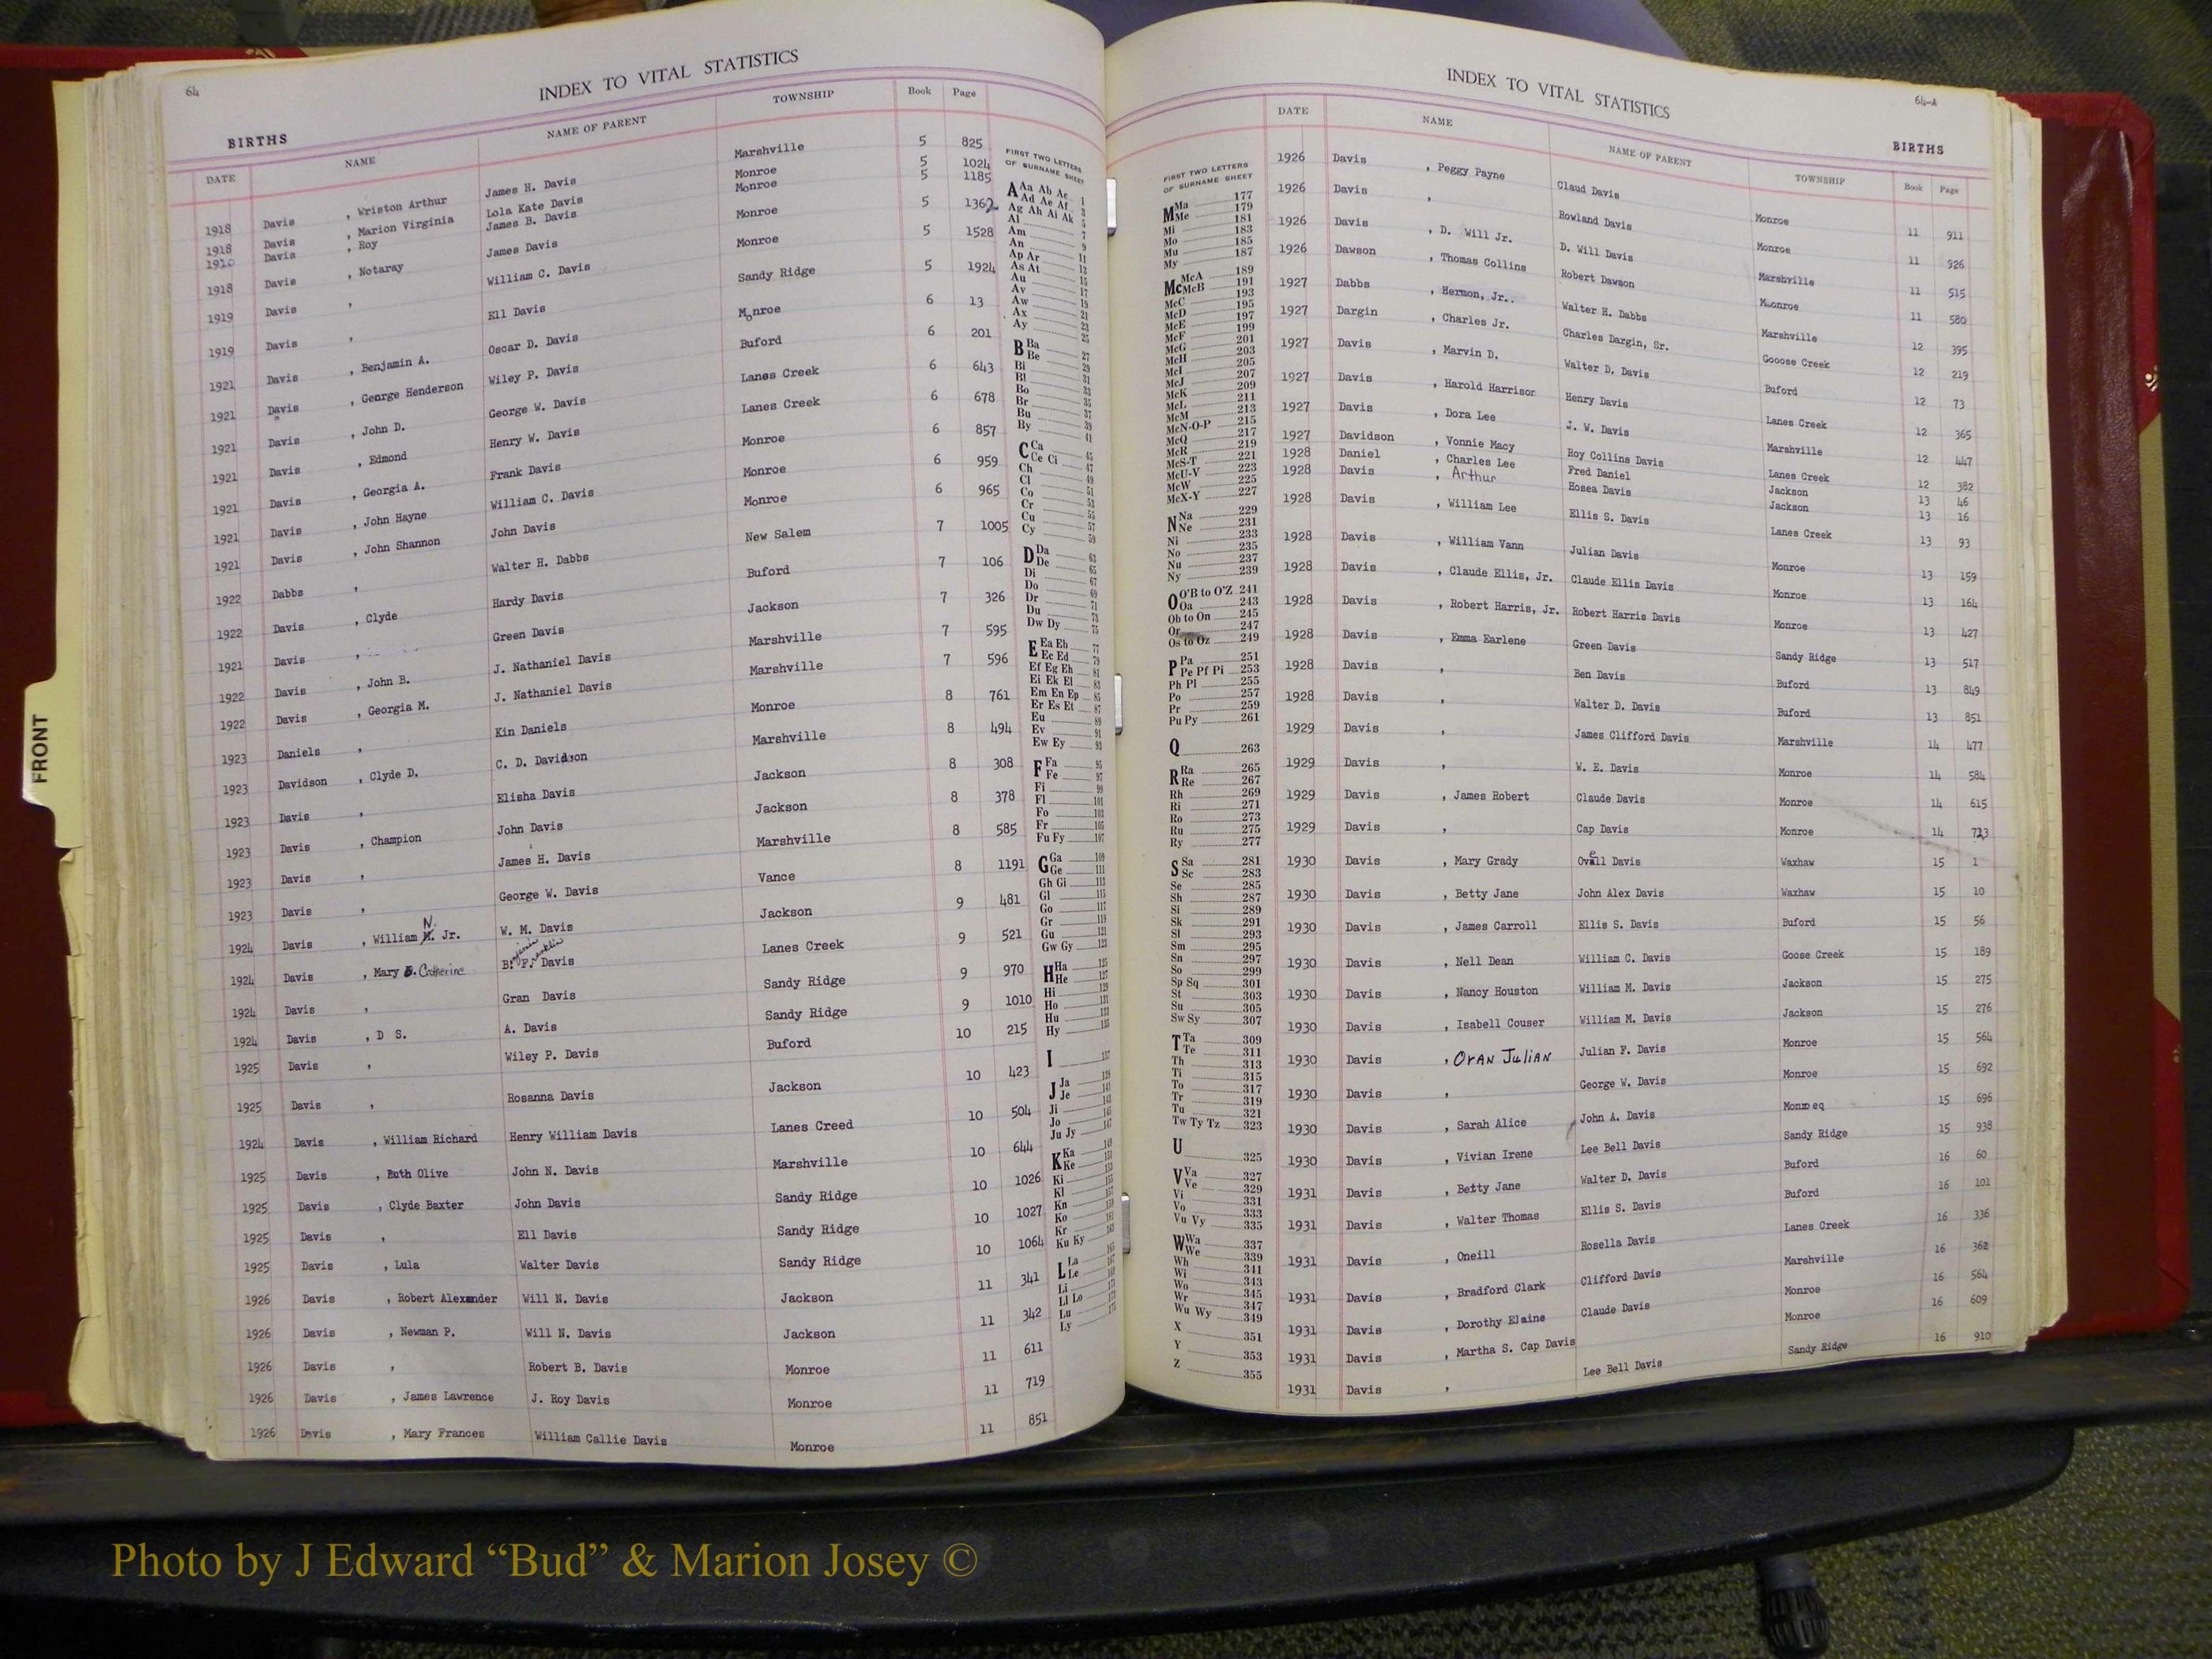 64
INDEX TO VITAL STATISTICS
BIRTHS
DATE NAME NAME OF PARENT TOWNSHIP Book Page
1918 Davis , Wriston Arthur James H. Davis Marshville 5 825
1918 Davis , Marion Virginia Lola Kate Davis Monroe 5 1024
Davis , Roy James B. Davis Monroe 5 1185
1918 Davis , Notaray James Davis Monroe 5 1362
1919 Davis , William C. Davis Monroe 5 1528
1919 Davis , Ell Davis Sandy Ridge 5 1924
1921 Davis , Benjamin A. Oscar D. Davis Monroe 6 13
1921 Davis , George Henderson Wiley P. Davis Buford 6 201
1921 Davis , John D. George W. Davis Lanes Creek 6 643
1921 Davis , Edmond Henry W. Davis Lanes Creek 6 678
1921 Davis , Georgia A. Frank Davis Monroe 6 857
1921 Davis , John Hayne William C. Davis Monroe 6 959
1921 Davis , John Shannon John Davis Monroe 6 965
1922 Dabbs , Walter H. Dabbs New Salem 7 1005
1922 Davis , Clyde Hardy Davis Buford 7 106
1921 Davis , Green Davis Jackson 7 326
1922 Davis , John B. J. Nathaniel Davis Marshville 7 595
1922 Davis , Georgia M. J. Nathaniel Davis Marshville 7 596
1923 Daniels , Kin Daniels Monroe 8 761
1923 Davidson , Clyde D. C. D. Davidson Marshville 8 494
1923 Davis , Elisha Davis Jackson 8 308
1923 Davis , Champion John Davis Jackson 8 378
1923 Davis , James H. Davis Marshville 8 585
1923 Davis , George W. Davis Vance 8 1191
1924 Davis , William N. Jr. W. M. Davis Jackson 9 481
1924 Davis , Mary Catherine B. F. Davis Lanes Creek 9 521
1924 Davis , Gran Davis Sandy Ridge 9 970
1924 Davis , D S. A. Davis Sandy Ridge 9 1010
1925 Davis , Wiley P. Davis Buford 10 215
1925 Davis , Rosanna Davis Jackson 10 423
1924 Davis , William Richard Henry William Davis Lanes Creed 10 504
1925 Davis , Ruth Olive John N. Davis Marshville 10 644
1925 Davis , Clyde Baxter John Davis Sandy Ridge 10 1026
1925 Davis , Ell Davis Sandy Ridge 10 1027
1925 Davis , Lula Walter Davis Sandy Ridge 10 1064
1926 Davis , Robert Alexander Will N. Davis Jackson 11 341
1926 Davis , Newman P. Will N. Davis Jackson 11 342
1926 Davis , Robert B. Davis Monroe 11 611
1926 Davis , James Lawrence J. Roy Davis Monroe 11 719
1926 Davis , Mary Frances William Callie Davis Monroe 11 851
FIRST TWO LETTERS
OF SURNAME SHEET
A Aa Ab Ac 1
Ad Ae Af 3
Ag Ah Ai Ak 5
Al 7
Am 9
An 11
Ap Ar 13
As At 15
Au 17
Av 19
Aw 21
Ax 23
Ay 25
B Ba 27
Be 29
Bi 31
Bl
Bo 35
Br 37
Bu 39
By 41
C Ca 45
Ce Ci 47
Ch 49
Cl 51
Co
Cr 55
Cu 57
Cy 59
D Da 63
De 65
Di 67
Do 69
Dr 71
Du 73
Dw Dy 75
E Ea Eb 77
Ec Ed 79
Ef Eg Eh 81
Ei Ek El 83
Em En Ep 85
Er Es Et 87
Eu 89
Ev 91
Ew Ey 93
F Fa 95
Fe 97
Fi 99
Fl 101
Fo 103
Fr 105
Fu Fy 107
G Ga 109
Ge 111
Gh Gi 113
Gl 115
Go 117
Gr 119
Gu 121
Gw Gy 123
H Ha 125
He 127
Hi 129
Ho 131
Hu 133
Hy 135
I 137
J Ja 139
Je
Ji
Jo
Ju Jy 147
K Ka 149
Ke
Ki
Kl
Kn
Ko
Kr
Ku Ky
L La 165
Le
Li
Ll Lo
Lu
Ly 175
FRONT
INDEX TO VITAL STATISTICS
64-A
BIRTHS
FIRST TWO LETTERS
OF SURNAME SHEET
M Ma 177
Me 179
Mi 181
Mo 183
Mu 185
My 187
Mc McA 189
McB 191
McC 193
McD 195
McE 197
McF 199
McG 201
McH 203
McI 205
McJ 207
McK 209
McL 211
McM 213
McN-O-P 215
McQ 217
McR 219
McS-T 221
McU-V 223
McW 225
McX-Y 227
N Na 229
Ne 231
Ni 233
No 235
Nu 237
Ny 239
O O'B to O'Z 241
Oa 243
Ob to On 245
Or 247
Os to Oz 249
P Pa 251
Pe Pf Pi 253
Ph Pl 255
Po 257
Pr 259
Pu Py 261
Q 263
R Ra 265
Re 267
Rh 269
Ri 271
Ro 273
Ru 275
Ry 277
S Sa 281
Sc 283
Se 285
Sh 287
Si 289
Sk 291
Sl 293
Sm 295
Sn 297
So 299
Sp Sq 301
St 303
Su 305
Sw Sy 307
T Ta 309
Te 311
Th 313
Ti 315
To 317
Tr 319
Tu 321
Tw Ty Tz 323
U 325
V Va 327
Ve 329
Vi 331
Vo 333
Vu Vy 335
W Wa 337
We 339
Wh 341
Wi 343
Wo 345
Wr 347
Wu Wy 349
X 351
Y 353
Z 355
DATE NAME NAME OF PARENT TOWNSHIP Book Page
1926 Davis , Peggy Payne Claud Davis Monroe 11 911
1926 Davis , Rowland Davis Monroe 11 926
1926 Davis , D. Will Jr. D. Will Davis Marshville 11 515
1926 Dawson , Thomas Collins Robert Dawson Monroe 11 580
1927 Dabbs , Hermon, Jr.. Walter H. Dabbs Marshville 12 395
1927 Dargin , Charles Jr. Charles Dargin, Sr. Gooose Creek 12 219
1927 Davis , Marvin D. Walter D. Davis Buford 12 73
1927 Davis , Harold Harrison Henry Davis Lanes Creek 12 365
1927 Davis , Dora Lee J. W. Davis Marshville 12 447
1927 Davidson , Vonnie Macy Roy Collins Davis Lanes Creek 12 382
1928 Daniel , Charles Lee Fred Daniel Jackson 13 46
1928 Davis , Arthur Hosea Davis Jackson 13 16
1928 Davis , William Lee Ellis S. Davis Lanes Creek 13 93
1928 Davis , William Vann Julian Davis Monroe 13 159
1928 Davis , Claude Ellis, Jr. Claude Ellis Davis Monroe 13 164
1928 Davis , Robert Harris, Jr. Robert Harris Davis Monroe 13 427
1928 Davis , Emma Earlene Green Davis Sandy Ridge 13 517
1928 Davis , Ben Davis Buford 13 849
1928 Davis , Walter D. Davis Buford 13 851
1929 Davis , James Clifford Davis Marshville 14 477
1929 Davis , W. E. Davis Monroe 14 584
1929 Davis , James Robert Claude Davis Monroe 14 615
1929 Davis , Cap Davis Monroe 14 723
1930 Davis , Mary Grady Ovell Davis Waxhaw 15 1
1930 Davis , Betty Jane John Alex Davis Waxhaw 15 10
1930 Davis , James Carroll Ellis S. Davis Buford 15 56
1930 Davis , Nell Dean William C. Davis Goose Creek 15 189
1930 Davis , Nancy Houston William M. Davis Jackson 15 275
1930 Davis , Isabell Couser William M. Davis Jackson 15 276
1930 Davis , Oran Julian Julian F. Davis Monroe 15 564
1930 Davis , George W. Davis Monroe 15 692
1930 Davis , Sarah Alice John A. Davis Monroeq 15 696
1930 Davis , Vivian Irene Lee Bell Davis Sandy Ridge 15 938
1931 Davis , Betty Jane Walter D. Davis Buford 16 60
1931 Davis , Walter Thomas Ellis S. Davis Buford 16 101
1931 Davis , Oneill Rosella Davis Lanes Creek 16 336
1931 Davis , Bradford Clark Clifford Davis Marshville 16 362
1931 Davis , Dorothy Elaine Claude Davis Monroe 16 564
1931 Davis , Martha S. Cap Davis Monroe 16 609
1931 Davis , Lee Bell Davis Sandy Ridge 16 910
Photo by J Edward “Bud” & Marion Josey ©